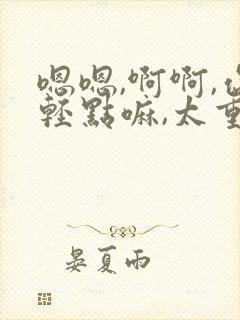 嗯嗯,啊啊,
輕點嘛,太重
晏夏雨